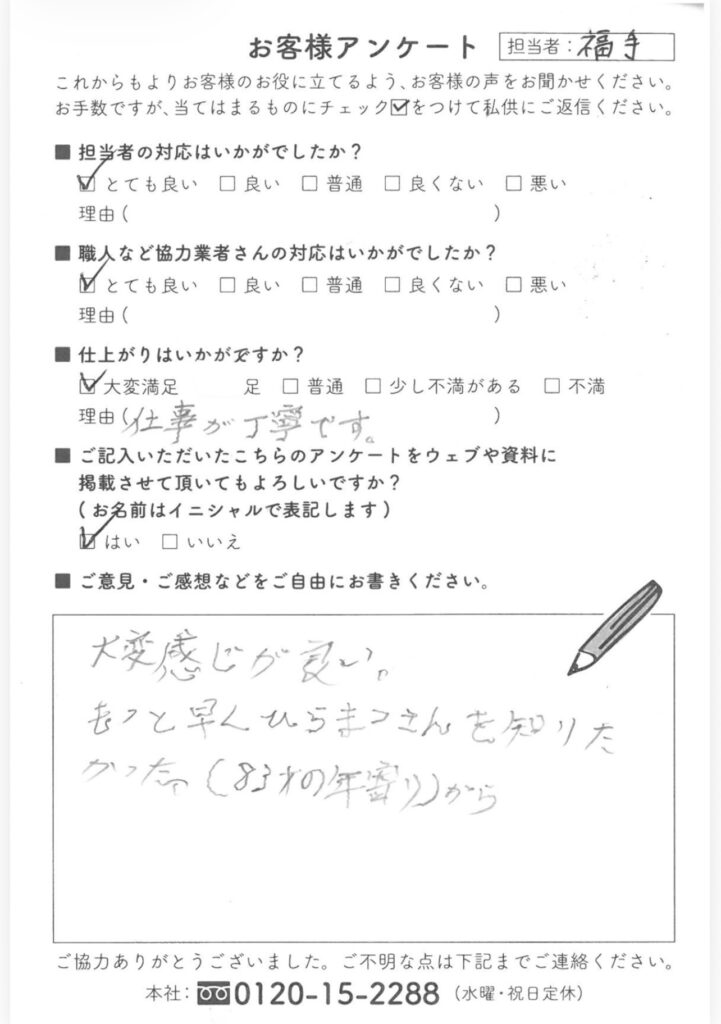 お客様アンケート 担当者：福手
これからもよりお客様のお役に立てるよう、お客様の声をお聞かせください。
お手数ですが、当てはまるものにチェック☑をつけて私供にご返信ください。
■ 担当者の対応はいかがでしたか？
☑ とても良い □ 良い □ 普通 □ 良くない □ 悪い
理由（ ）
■ 職人など協力業者さんの対応はいかがでしたか？
☑ とても良い □ 良い □ 普通 □ 良くない □ 悪い
理由（ ）
■ 仕上がりはいかがですか？
☑ 大変満足 足 □ 普通 □ 少し不満がある □ 不満
理由（仕事が丁寧です。）
■ ご記入いただいたこちらのアンケートをウェブや資料に
掲載させて頂いてもよろしいですか？
（お名前はイニシャルで表記します）
☑ はい □ いいえ
■ ご意見・ご感想などをご自由にお書きください。
大変感じが良い。
もっと早くひらまつさんを知りた
かった。（83才の年寄り）から
ご協力ありがとうございました。ご不明な点は下記までご連絡ください。
本社：0120-15-2288（水曜・祝日定休）